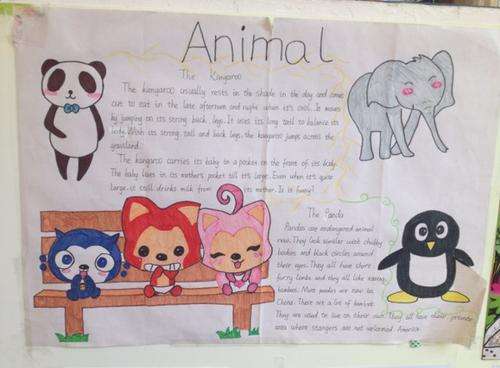 Animal
The Kangaroo
The kangaroo usually rests in the shade in the day and come
out to eat in the late afternoon and night when it's cool. It moves
by jumping on its strong back legs. It uses its long tail to balance its
body. With its strong tail and back legs, the kangaroo jumps across the
grassland.
The kangaroo carries its baby in a pocket on the front of its body.
The baby lives in its mother's pocket till it's large. Even when it's quite
large, it still drinks milk from its mother. Is it funny?
The Panda
Pandas are endangered animal
now. They look similar with chubby
bodies and black circles around
their eyes. They all have short
furry limbs and they all like eating
bamboo. Most pandas are now in
China. There are a lot of bamboo
They are used to live on their own. They all have their private
area where strangers are not welcomed. America